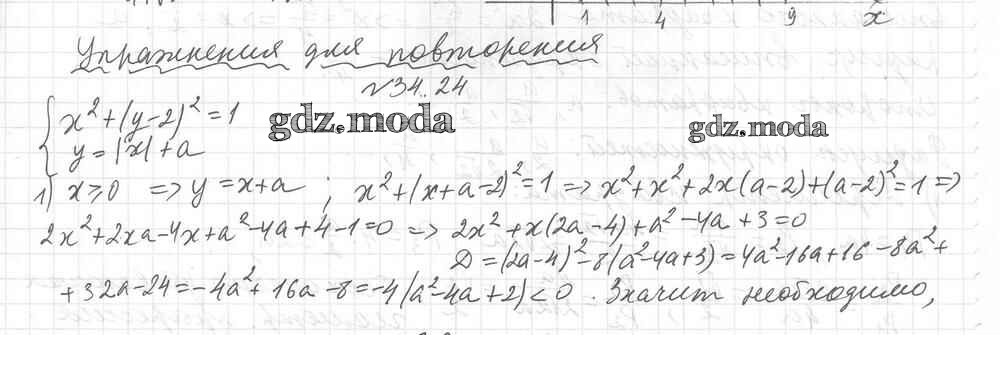 1 4 9 x
Упражнения для повторения
№34.24
{ x² + (y-2)² = 1
gdz.moda
gdz.moda
y = |x| + a
1) x ⩾ 0 => y = x+a ; x² + (x+a-2)² = 1 => x² + x² + 2x(a-2) + (a-2)² = 1 =>
2x² + 2xa - 4x + a² - 4a + 4 - 1 = 0 => 2x² + x(2a-4) + a² - 4a + 3 = 0
D = (2a-4)² - 8(a² - 4a + 3) = 4a² - 16a + 16 - 8a² +
+ 32a - 24 = -4a² + 16a - 8 = -4(a² - 4a + 2) < 0 . Значит необходимо,